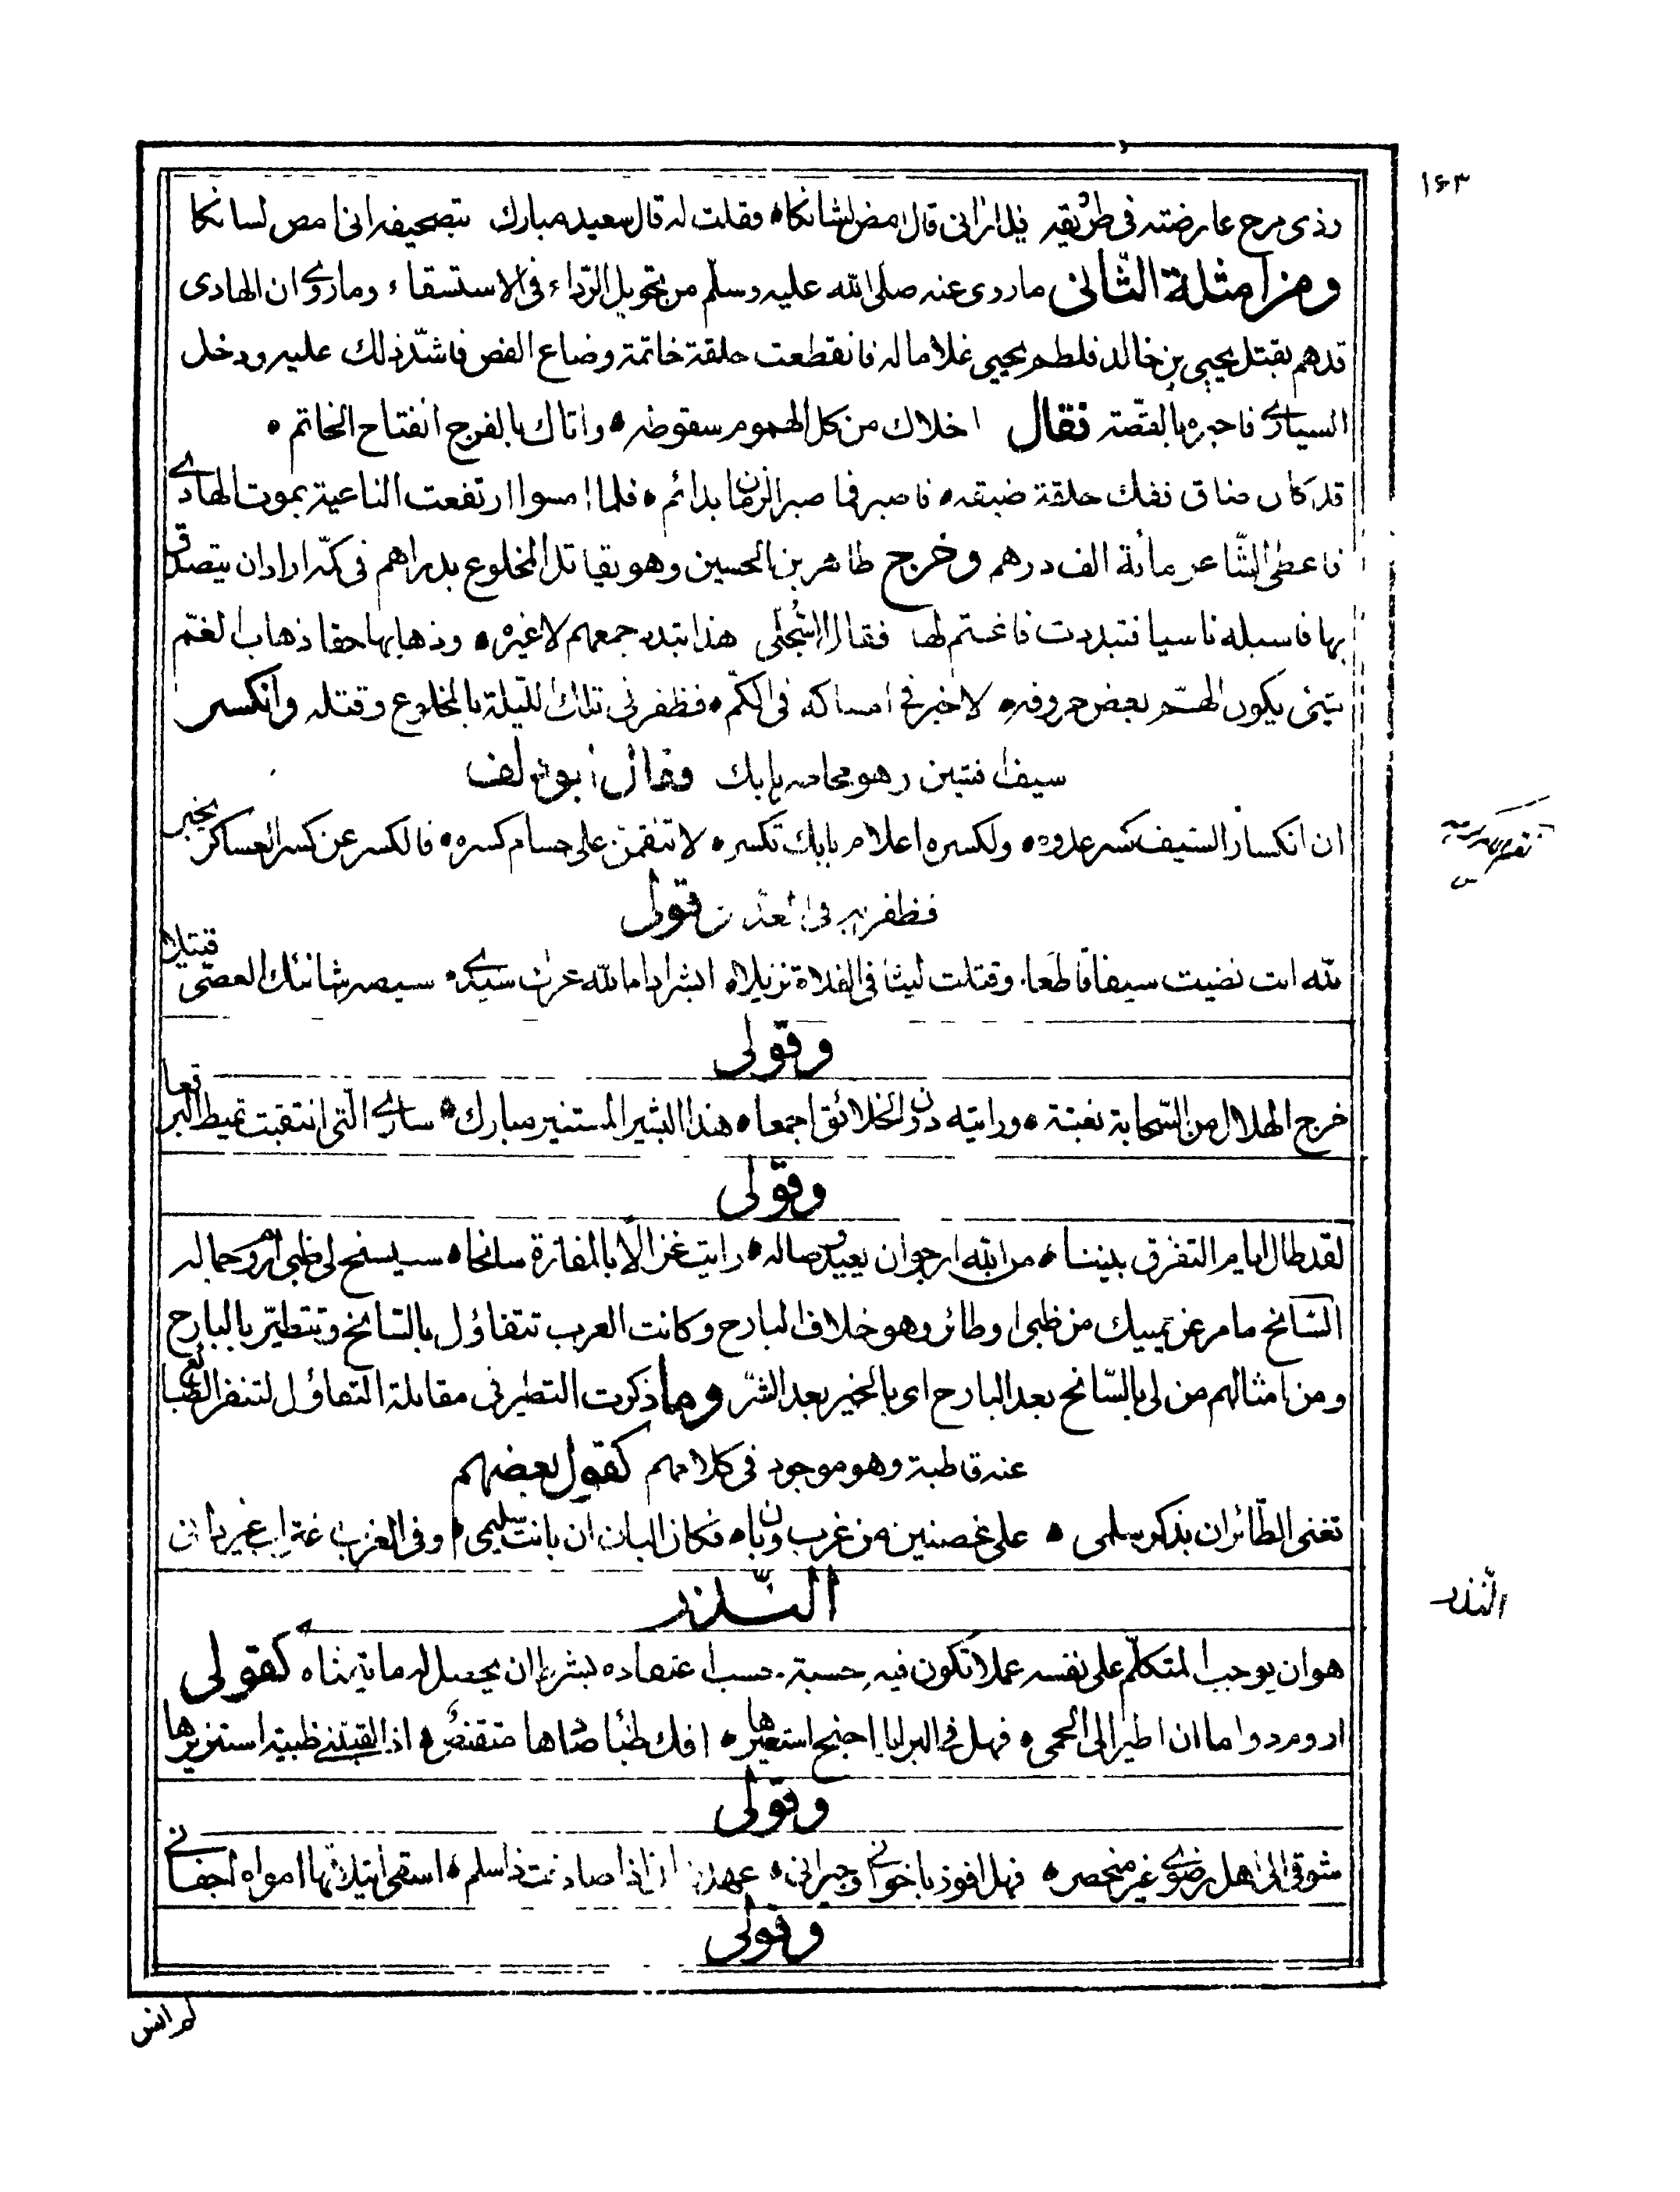 ١٤٣
وذى مرح عارضته فى طريقه فلما رانى قال امض لشانكا فقلت له قال سعيد مبارك بتصحيفه انى امص لسانكا
ومن امثلة الثّانى ماروى عنه صلّى الله عليه وسلّم من تحويل الرّداء فى الاستسقاء وماروى ان الهادى
قد هم بقتل يحيى بن خالد فلطم يحيى غلاما له فانقطعت حلقة خاتمة وضاع الفص فاشتدّ ذلك عليه ودخل
السيارى فاخبره بالقصّة فقال اخلاك من كل الهموم سقوطه واتاك بالفرج انفتاح الخاتم
قد كان ضاق ففك حلقة ضيقه فاصبر فما صبر الزمان بدائم فلما امسوا ارتفعت الناعية بموت الهادى
فاعطى الشّاعر مائة الف درهم وخرج طاهر بن الحسين وهو يقاتل المخلوع بدراهم فى كمّه اراد ان يتصدق
بها فاسبله ناسيا فتبددت فاغتم لها فقال هذا تبدد جمعهم لا غيره وذهابها حقا ذهاب الغمّ
شيئى يكون الهمّ بعض حروفه لا خير فى امساكه فى الكمّ فظفر فى تلك اللّيلة بالمخلوع وقتله وانكسر
سيف افشين وهو محاصر بابك فقال ابو دلف
ان انكسار السّيف كسر عدوه ولكسره اعلام بابك تكسر لا تنقمن على حسام كسره فالكسر عن كسر العساكر يخبر
فظفر به فى الغد وقولى
لله انت نضيت سيفا قاطعا وقتلت ليثا فى الفلاة نزيلا ابشر اماما لله عزك سيدى سيصير شانئك العصى قتيلا
وقولى
خرج الهلال من السّحابة بغتة ورايته دون الخلائق اجمعا هذا البشير المستنير مبارك سارى الّتى انتقبت تميط البرقعا
وقولى
لقد طال ايام التفرق بيننا من الله ارجو ان يعيد وصاله رايت غزالا بالمفازة سانحا سيسنح لى ظبى اروم جماله
السّانح ما مر عن يمينك من ظبى او طائر وهو خلاف البارح وكانت العرب تتفاؤل بالسّانح وتتطيّر بالبارح
ومن امثالهم من لى بالسّانح بعد البارح اى بالخير بعد الشّر وما ذكرت التطير فى مقابلة التفاؤل لتنفر الطبائع
عنه قاطبة وهو موجود فى كلامهم كقول بعضهم
تغنى الطّائران بذكر سلمى على غصنين من غرب وبان فكان البان ان بانت سليمى وفى الغرب
النّذر
هو ان يوجب المتكلّم على نفسه عملا تكون فيه حسبة حسب اعتقاده بشرط ان يحصل له ما يتمناه كقولى
اروم دواما ان اطير الى الحمى فهل فى البرايا اجنح استعيرها افك ظبا صادها متقنص اذا لقيتنى ظبية استزيرها
وقولى
شوقى الى اهل رضوى غير منحصر فهل افوذ باخوانى وجيرانى اذا صادفت ذاسلم اسقى اثيلاتها امواه اجفانى
وقولى
النّذر